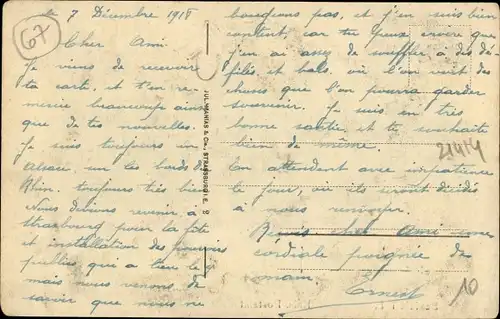 67
le 7 Décembre 1918
Cher Ami
Je viens de recevoir
ta carte, et t'en re-
mercie beaucoup ainsi
que de tes nouvelles.
Je suis toujours en
Alsace, sur les bords du
Rhin, toujours très bien
Nous devions revenir à
Strasbourg pour la fête
et installation des pouvoirs
publics qui a lieu le
mais nous venons de
savoir que nous ne
bougeons pas, et j'en suis bien
content, car tu peux croire que
j'en ai assez de souffler à des dé-
filés et bals, où l'on voit des
choses que l'on pourra garder
souvenir. Je suis en très
bonne santé et te souhaite
bien de même.
En attendant avec impatience
le jour, où ils seront décidés
à nous renvoyer.
Reçois cher Ami une
cordiale poignée de
main.
Ernest
JUL. MANIAS & Cie., STRASBOURG I. E.
21414
10